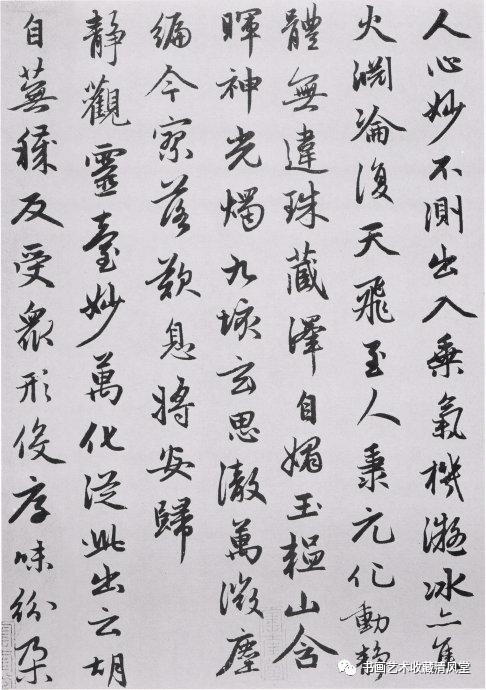 人心妙不測出入乘氣機凝冰亦焦
火淵淪復天飛至人秉元化動靜
體無違珠藏澤自媚玉韞山含
暉神光燭九垓玄思徹萬微塵
編今寥落歎息將安歸
靜觀靈臺妙萬化從此出云胡
自蕪穢反受眾形役厚味紛朵
书画艺术收藏清风堂